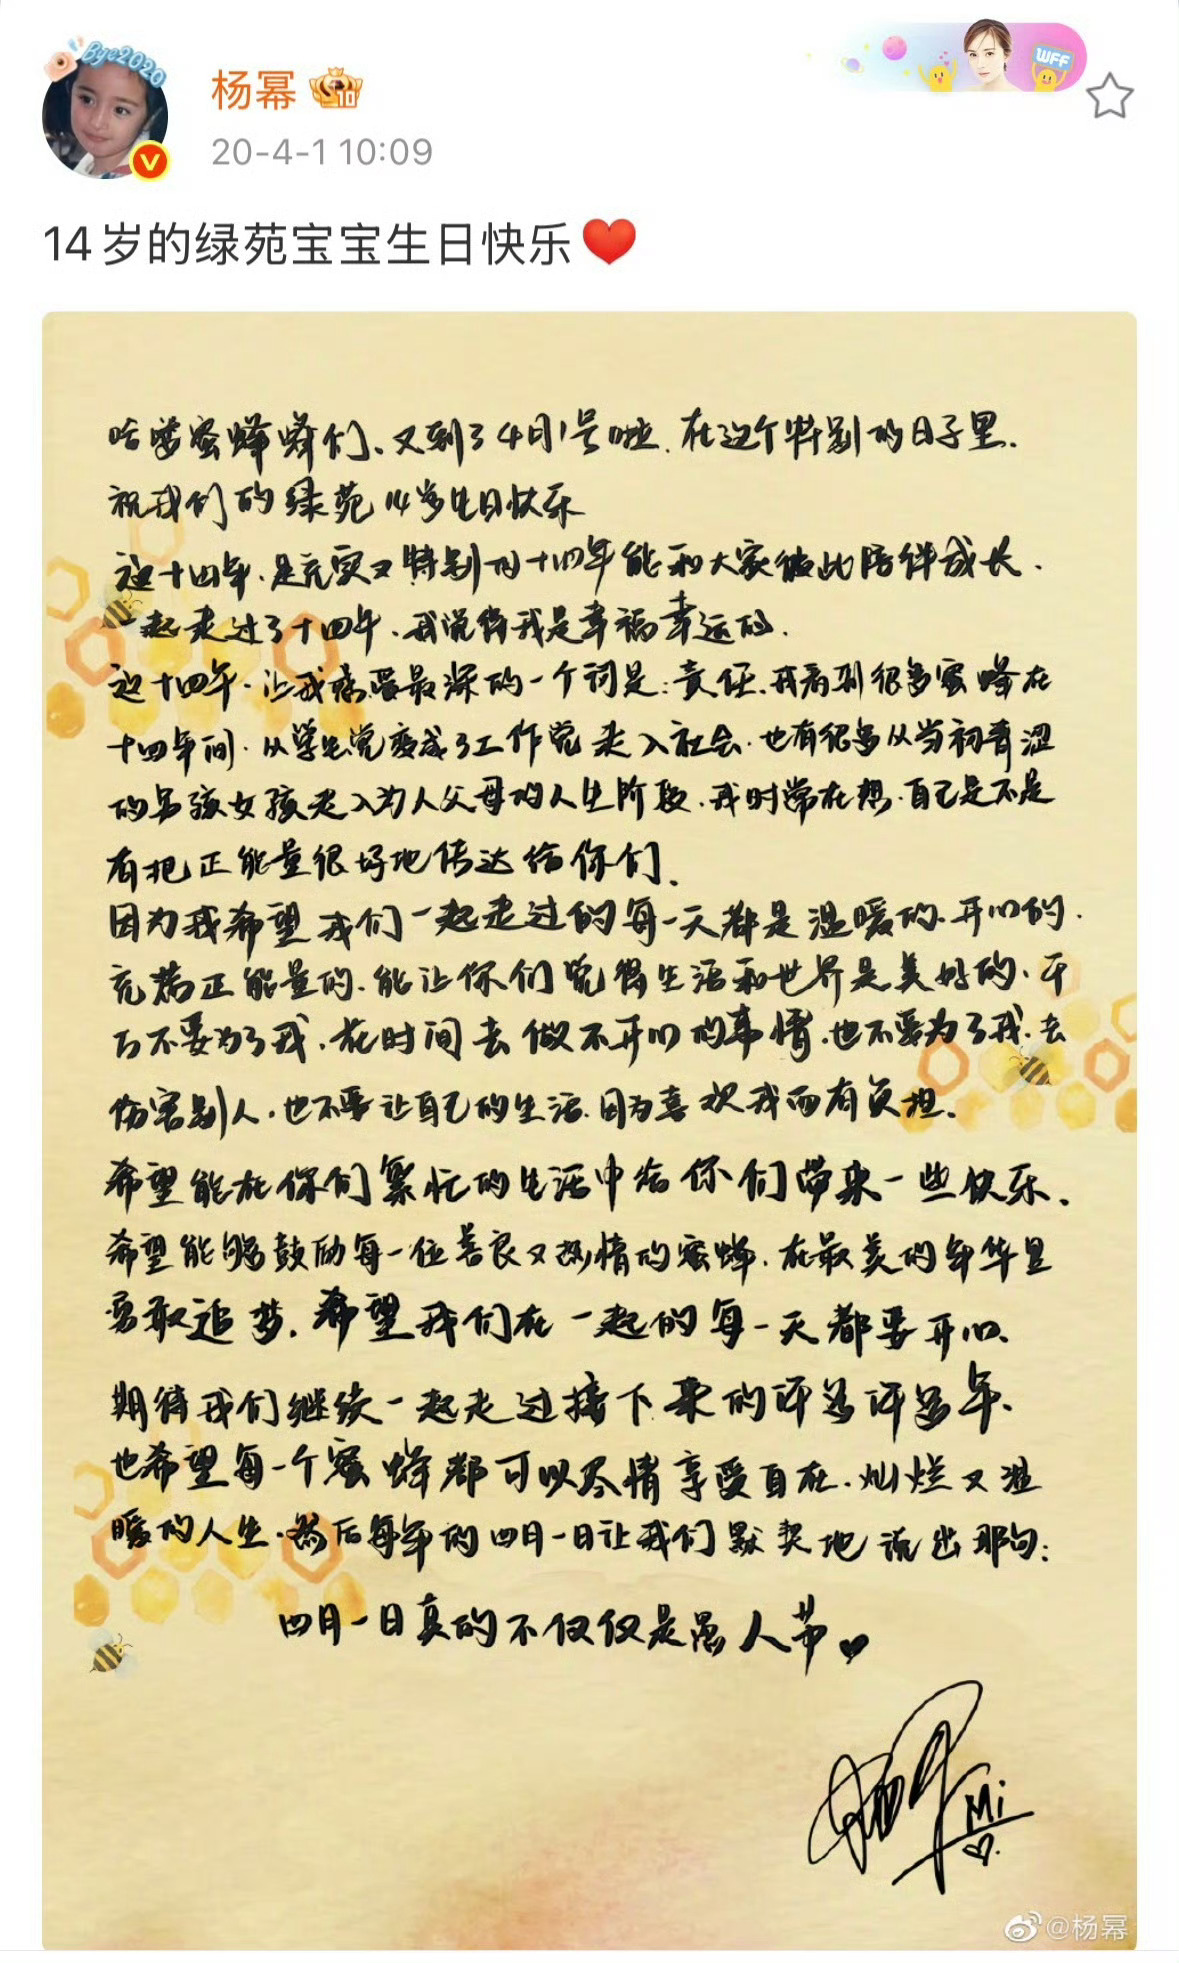 Bye2020
杨幂
WFF
20-4-1 10:09
14岁的绿苑宝宝生日快乐❤️
哈喽蜜蜂蜂们、又到了4月1号啦.在这个特别的日子里.
祝我们的绿苑14岁生日快乐
这十四年.是充实又特别的十四年能和大家彼此陪伴成长.
一起走过了十四年.我觉得我是幸福幸运的.
这十四年.让我感受最深的一个词是:责任.我看到很多蜜蜂在
十四年间.从学生党变成了工作党走入社会.也有很多从当初青涩
的男孩女孩走入为人父母的人生阶段.我时常在想.自己是不是
有把正能量很好地传达给你们.
因为我希望我们一起走过的每一天都是温暖的.开心的.
充满正能量的.能让你们觉得生活和世界是美好的.千
万不要为了我.花时间去做不开心的事情.也不要为了我.去
伤害别人.也不要让自己的生活.因为喜欢我而有负担.
希望能在你们繁忙的生活中给你们带来一些快乐.
希望能够鼓励每一位善良又热情的蜜蜂.在最美的年华里
勇敢追梦.希望我们在一起的每一天都要开心.
期待我们继续一起走过接下来的许多许多年.
也希望每一个蜜蜂都可以尽情享受自在.灿烂又温
暖的人生.然后每年的四月一日让我们默契地说出那句:
四月一日真的不仅仅是愚人节♥
杨幂 Mi
@杨幂